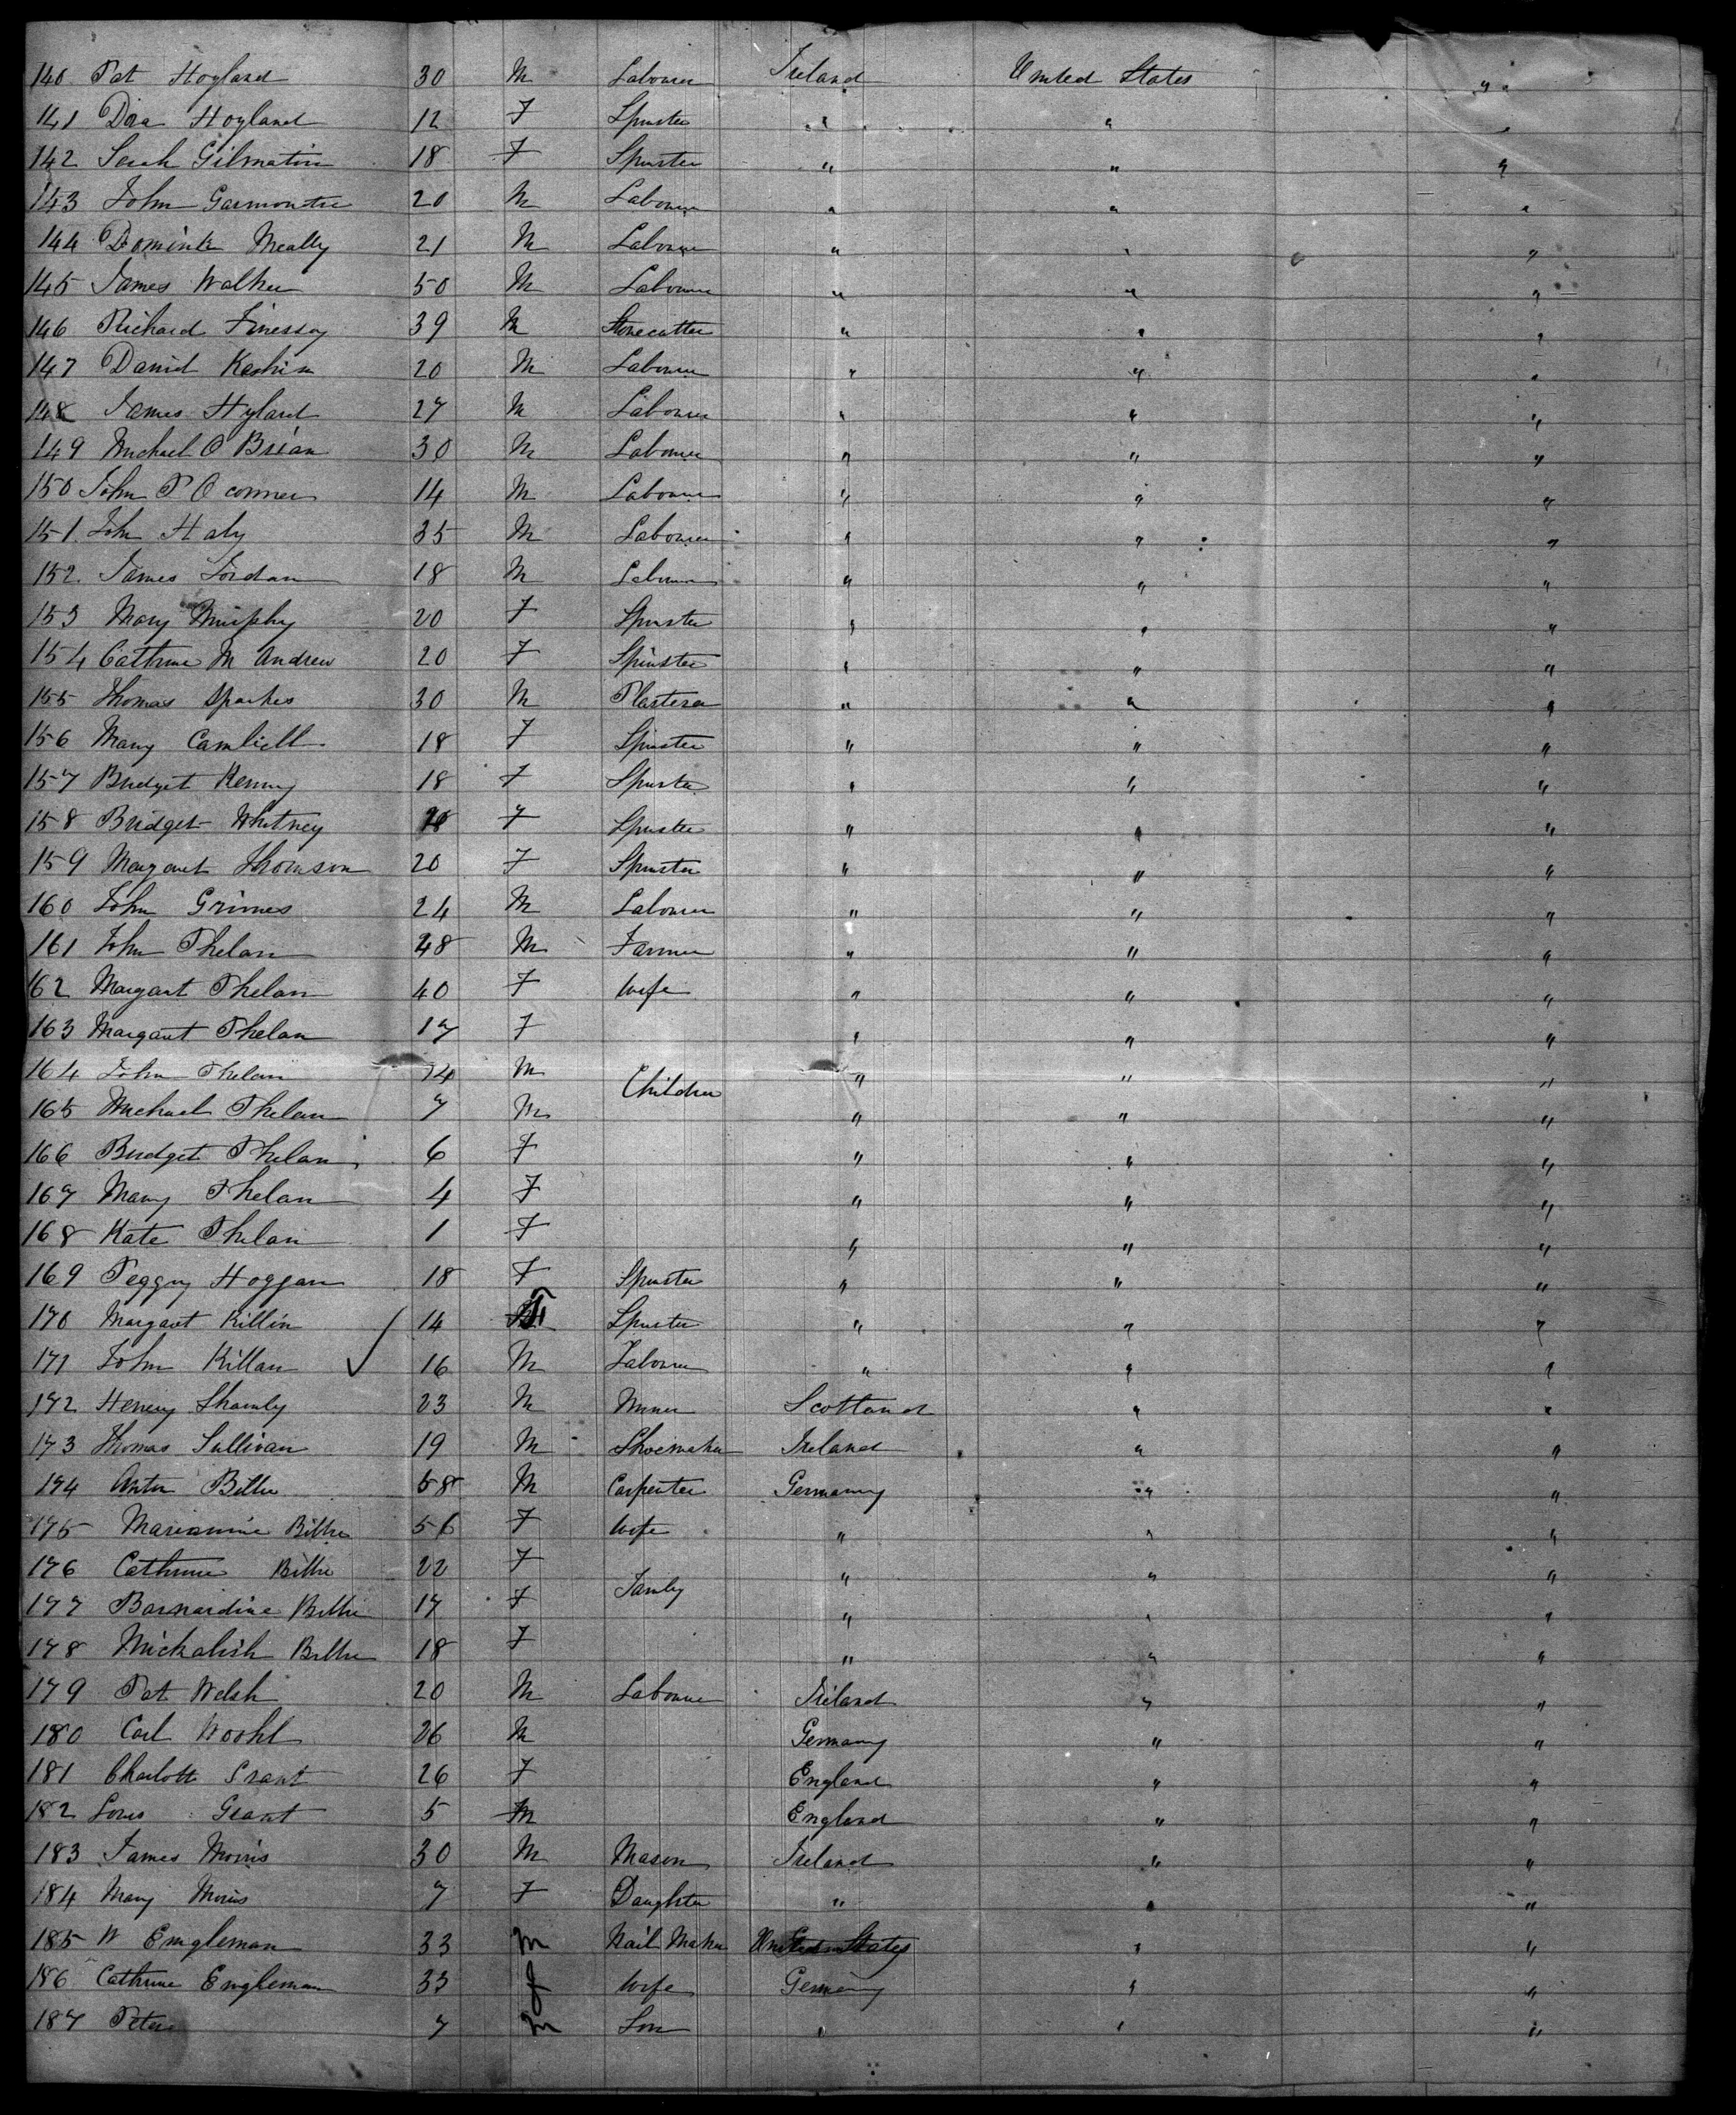 140 Pat Hoyland 30 M Labourer Ireland United States "
141 Dora Hoyland 12 F Spinster " " "
142 Sarah Gilmatin 18 F Spinster " " "
143 John Garmontre 20 M Labourer " " "
144 Dominik Meally 21 M Labourer " " "
145 James Walker 50 M Labourer " " "
146 Richard Finessy 39 M Stonecutter " " "
147 Daniel Kashin 20 M Labourer " " "
148 James Hyland 27 M Labourer " " "
149 Michael O Brian 30 M Labourer " " "
150 John P O conner 14 M Labourer " " "
151 John Haly 35 M Labourer " " "
152 James Jordan 18 M Labourer " " "
153 Mary Murphy 20 F Spinster " " "
154 Cathrine M Andrew 20 F Spinster " " "
155 Thomas Sparkes 30 M Plasterer " " "
156 Mary Cambiell 18 F Spinster " " "
157 Bridget Kenny 18 F Spinster " " "
158 Bridget Whitney F Spinster " " "
159 Margaret Thomson 20 F Spinster " " "
160 John Grimes 24 M Labourer " " "
161 John Phelan 48 M Farmer " " "
162 Margart Phelan 40 F Wife " " "
163 Margaret Phelan 17 F " " "
164 John Phelan 14 M Children " " "
165 Michael Phelan 7 M " " "
166 Bridget Phelan 6 F " " "
167 Mary Phelan 4 F " " "
168 Kate Phelan 1 F " " "
169 Peggy Hoggan 18 F Spinster " " "
170 Margaret Killin 14 F Spinster " " "
171 John Killan 16 M Labourer " " "
172 Henery Shamly 23 M Miner Scotland " "
173 Thomas Sullivan 19 M Shoemaker Ireland " "
174 Anton Bithe 58 M Carpenter Germany " "
175 Marianine Bithe 56 F Wife " " "
176 Cathrine Bithe 22 F Family " " "
177 Barnardine Bithe 17 F " " "
178 Mickalish Bithe 18 F " " "
179 Pat Welsh 20 M Labourer Ireland " "
180 Carl Woohl 26 M Germany " "
181 Charlotte Grant 26 F England " "
182 Louis Grant 5 M England " "
183 James Morris 30 M Mason Ireland " "
184 Mary Morris 7 F Daughter " " "
185 W Engleman 33 M Nail Maker United States " "
186 Cathrine Engleman 33 F Wife Germany " "
187 Peter 7 M Son " " "